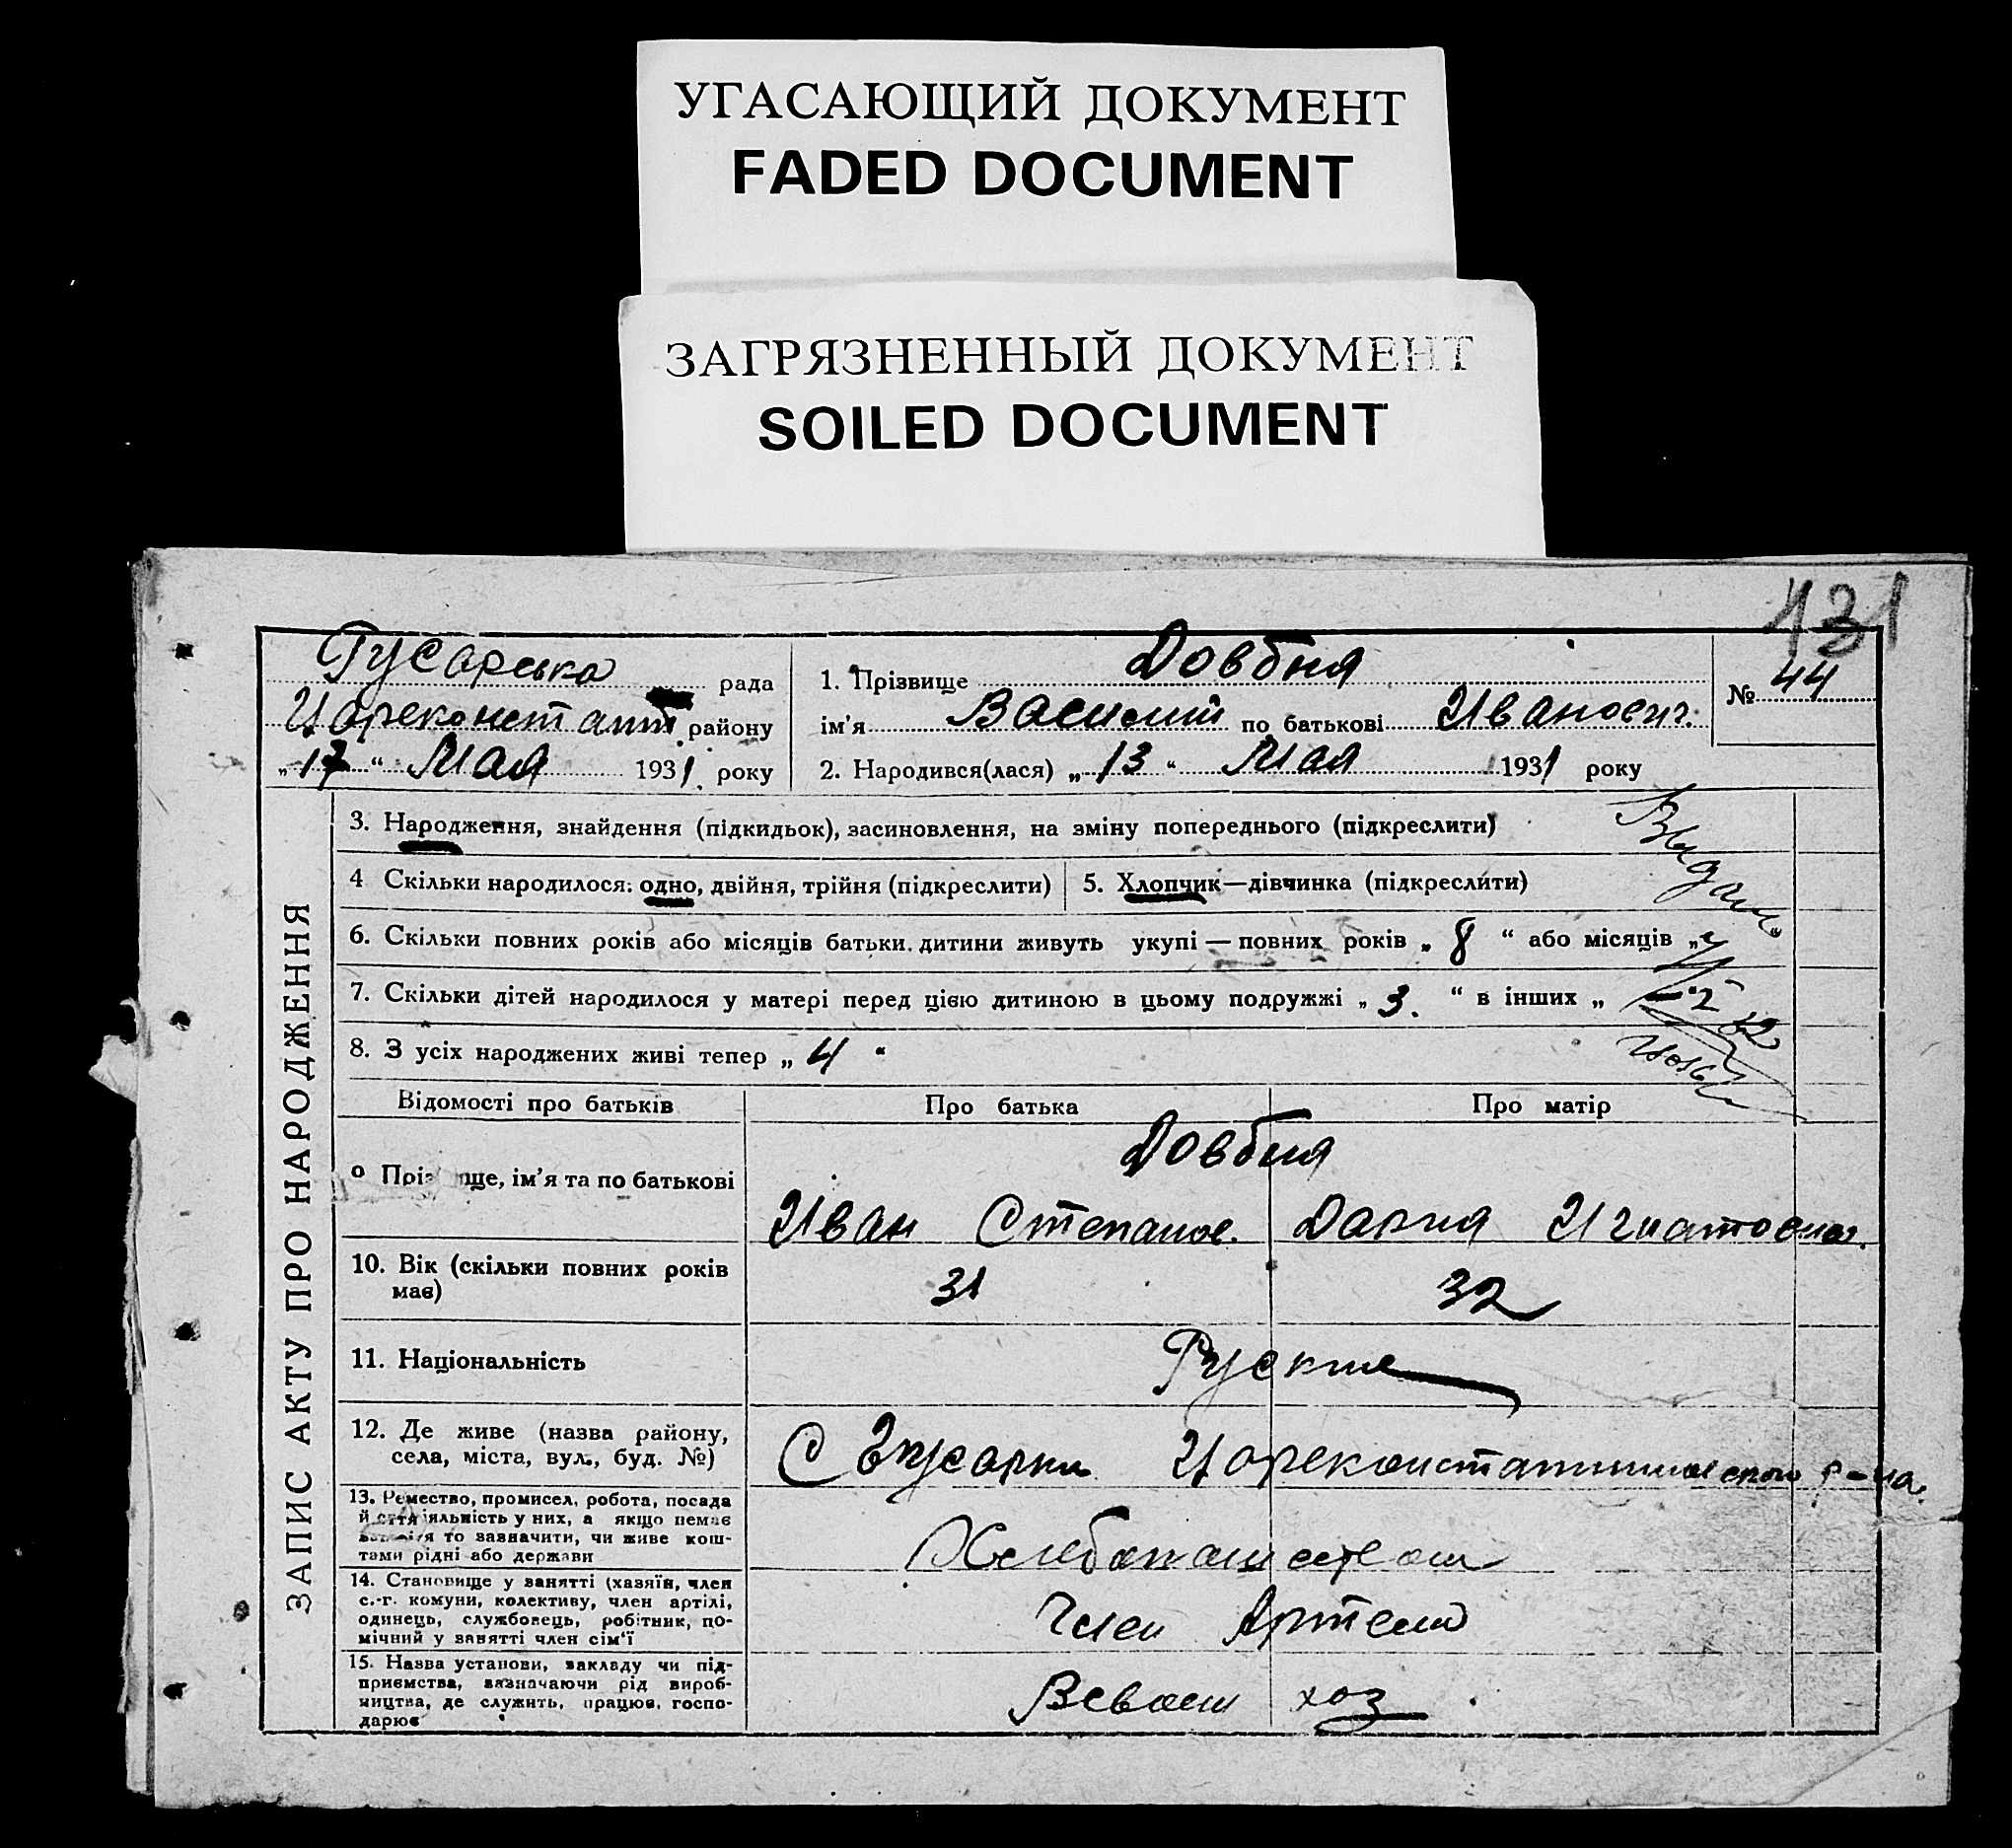 УГАСАЮЩИЙ ДОКУМЕНТ
FADED DOCUMENT
ЗАГРЯЗНЕННЫЙ ДОКУМЕНТ
SOILED DOCUMENT
431
Гусарська рада
Цареконстант. району
„17“ Мая 1931. року
1. Прізвище Довбня
ім'я Василий по батькові Иванович.
2. Народився(лася) „13“ Мая 1931 року
№ 44
ЗАПИС АКТУ ПРО НАРОДЖЕННЯ
3. Народження, знайдення (підкидьок), засиновлення, на зміну попереднього (підкреслити)
4 Скільки народилося: одно, двійня, трійня (підкреслити)
5. Хлопчик—дівчинка (підкреслити)
6. Скільки повних років або місяців батьки дитини живуть укупі — повних років „8“ або місяців „
7. Скільки дітей народилося у матері перед цією дитиною в цьому подружжі „3.“ в інших „
8. З усіх народжених живі тепер „4“
Відомості про батьків
Про батька
Про матір
Прі ще, ім'я та по батькові
Довбня
Иван Степанов.
Дария Игнатовна.
10. Вік (скільки повних років
має)
31
32
11. Національність
Руские
12. Де живе (назва району,
села, міста, вул., буд. №)
С Гусарка Цареконстантиновского р-на.
13. Ремество, промисел, робота, посада
й спеціяльність у них, а якщо немає
заняття то зазначити, чи живе кош-
тами рідні або держави
Хлебопашество
14. Становище у занятті (хазяїн, член
с.-г. комуни, колективу, член артілі,
одинець, службовець, робітник, по-
мічний у занятті член сім'ї
Член Артели
15. Назва установи, закладу чи під-
приємства, зазначаючи рід вироб-
ництва, де служить, працює, госпо-
дарює
В своем хоз